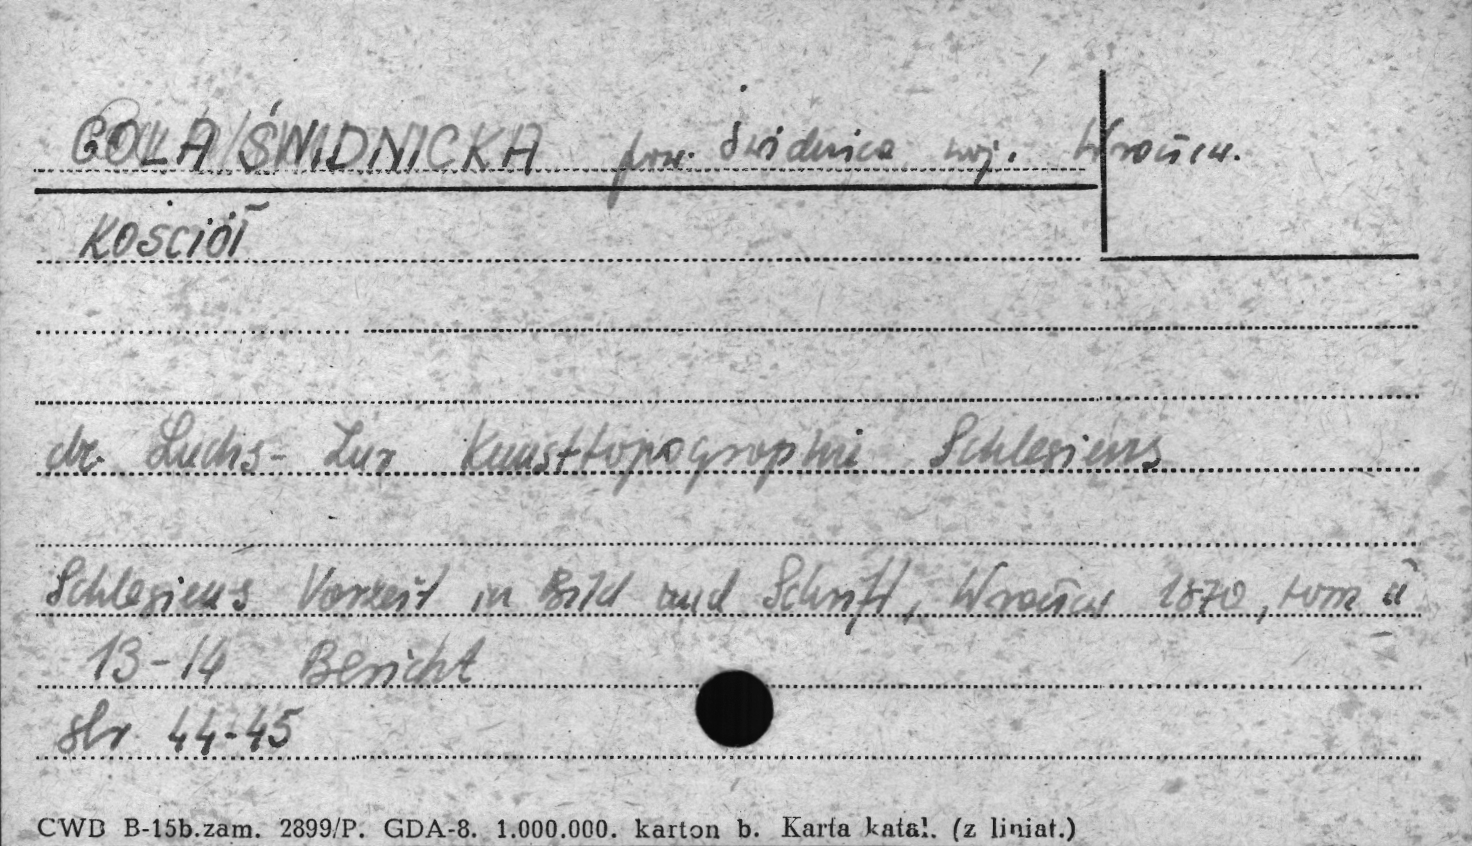 GOLA ŚWIDNICKA pow. Świdnica woj. Wrocław.
KOŚCIÓŁ
dr. Luchs - Zur Kunsttopographie Schlesiens
Schlesiens Vorzeit in Bild und Schrift, Wrocław 1870, tom II
13-14 Bericht
str 44-45
CWD B-15b.zam. 2899/P. GDA-8. 1.000.000. karton b. Karta katal. (z liniat.)